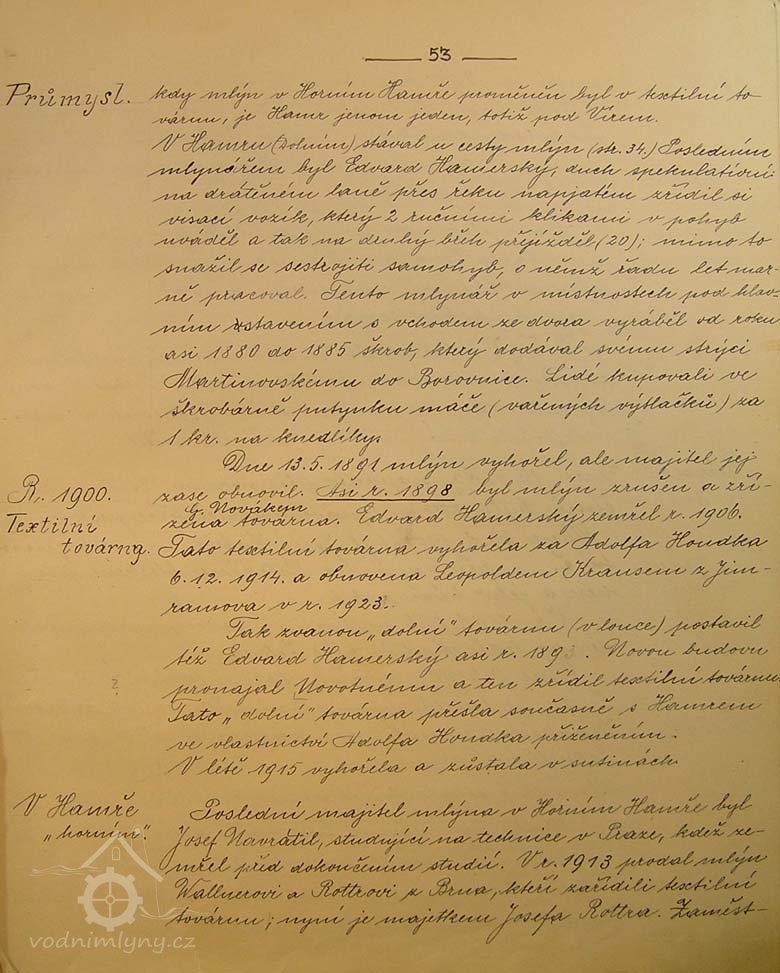 53
Průmysl.
kdy mlýn v Horním Hamře proměněn byl v textilní to
várnu, je Hamr jenom jeden, totiž pod Vírem.
V Hamru (Dolním) stával u cesty mlýn (str. 34.) Posledním
mlynářem byl Edvard Hamerský, duch spekulativní:
na drátěném laně přes řeku napjatém zřídil si
visací vozík, který 2 ručními klikami v pohyb
uváděl a tak na druhý břeh přijížděl (20); mimo to
snažil se sestrojiti samohyb, o němž řadu let mar-
ně pracoval. Tento mlynář v místnostech pod hlav-
ním stavením s vchodem ze dvora vyráběl od roku
asi 1880 do 1885 škrob, který dodával svému strýci
Martinovskému do Borovnice. Lidé kupovali ve
škrobárně putynku máče (vařených výtlačků) za
1 kr. na knedlíky.
Dne 13.5. 1891 mlýn vyhořel, ale majitel jej
R. 1900.
Textilní
továrna.
zase obnovil. Asi r. 1898 byl mlýn zrušen a zří-
G. Novákem
zena továrna. Edvard Hamerský zemřel r. 1906.
Tato textilní továrna vyhořela za Adolfa Hondka
6.12. 1914. a obnovena Leopoldem Krausem z Jim-
ramova v r. 1923.
Tak zvanou „dolní" továrnu (v louce) postavil
též Edvard Hamerský asi r. 189 . Novou budovu
?
pronajal Novotnému a ten zřídil textilní továrnu.
Tato „dolní" továrna přešla současně s Hamrem
ve vlastnictví Adolfa Hondka přiženěním.
V létě 1915 vyhořela a zůstala v sutinách
V Hamře
„horním".
Poslední majitel mlýna v Horním Hamře byl
Josef Navrátil, studující na technice v Praze, kdež ze-
mřel před dokončením studií. V r. 1913 prodal mlýn
Wallnerovi a Rottrovi z Brna, kteří zařídili textilní
továrnu; nyní je majetkem Josefa Rottra. Zaměst-
vodnimlyny.cz